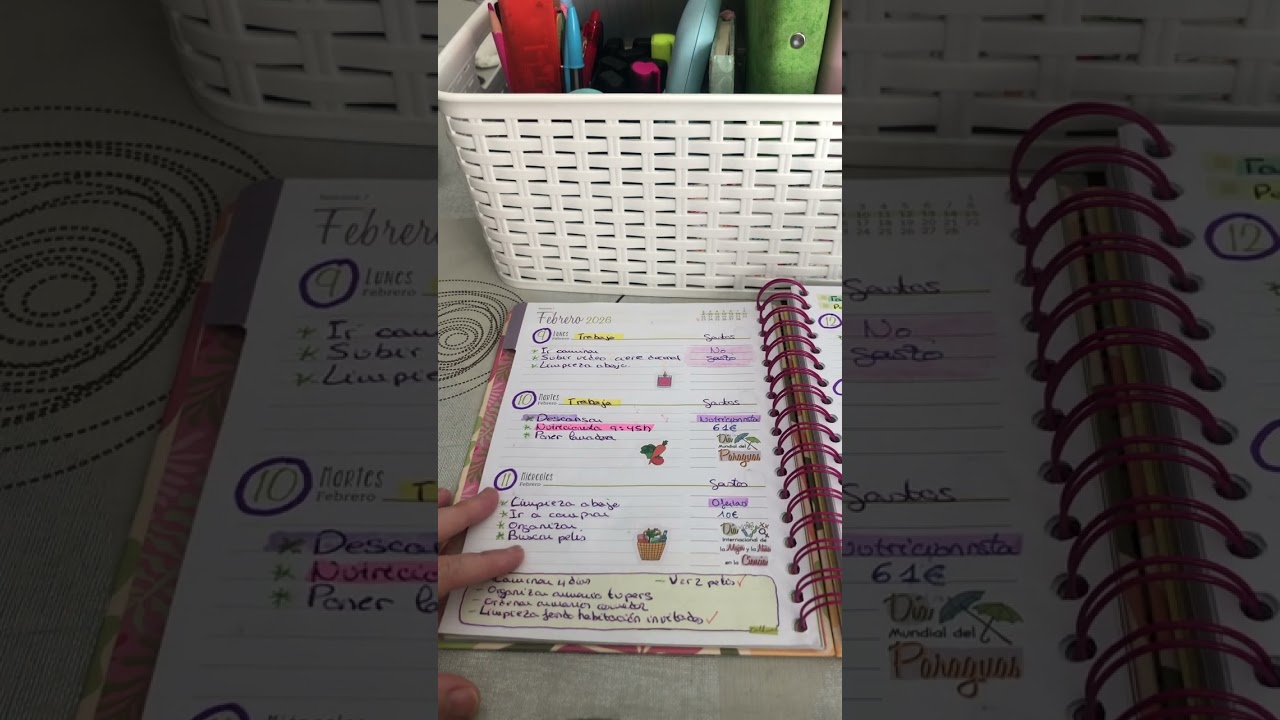 Febrero 2026
9 LUNES Trabajo Gastos
Febrero
* Ir caminar No
* Subir video cierre decenal gasto
* Limpieza abajo.
10 MARTES Trabajo Gastos
Febrero
* Descansar Nutricionista
* Nutricionista 9:45h 61€
* Poner lavadora Día
Mundial del
Paraguas
11 MIÉRCOLES Gastos
Febrero
* Limpieza abajo
* Ir a comprar 10€
* Organizar Día
* Buscar pelis Internacional de
la Mujer y la Niña
en la Ciencia
Caminar 4 días - Ver 2 pelis ✓
- Organizar armario tupers
- Ordenar armario comedor
- Limpieza fondo habitación invitados ✓
12